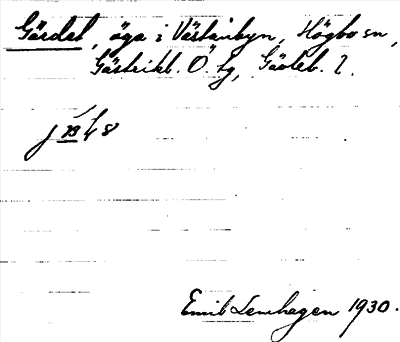 Gärdet, äga i Västanbyn, Högbo sn,
Gästrikl. Ö. tg, Gävleb. l.
Emil Lenhagen 1930.